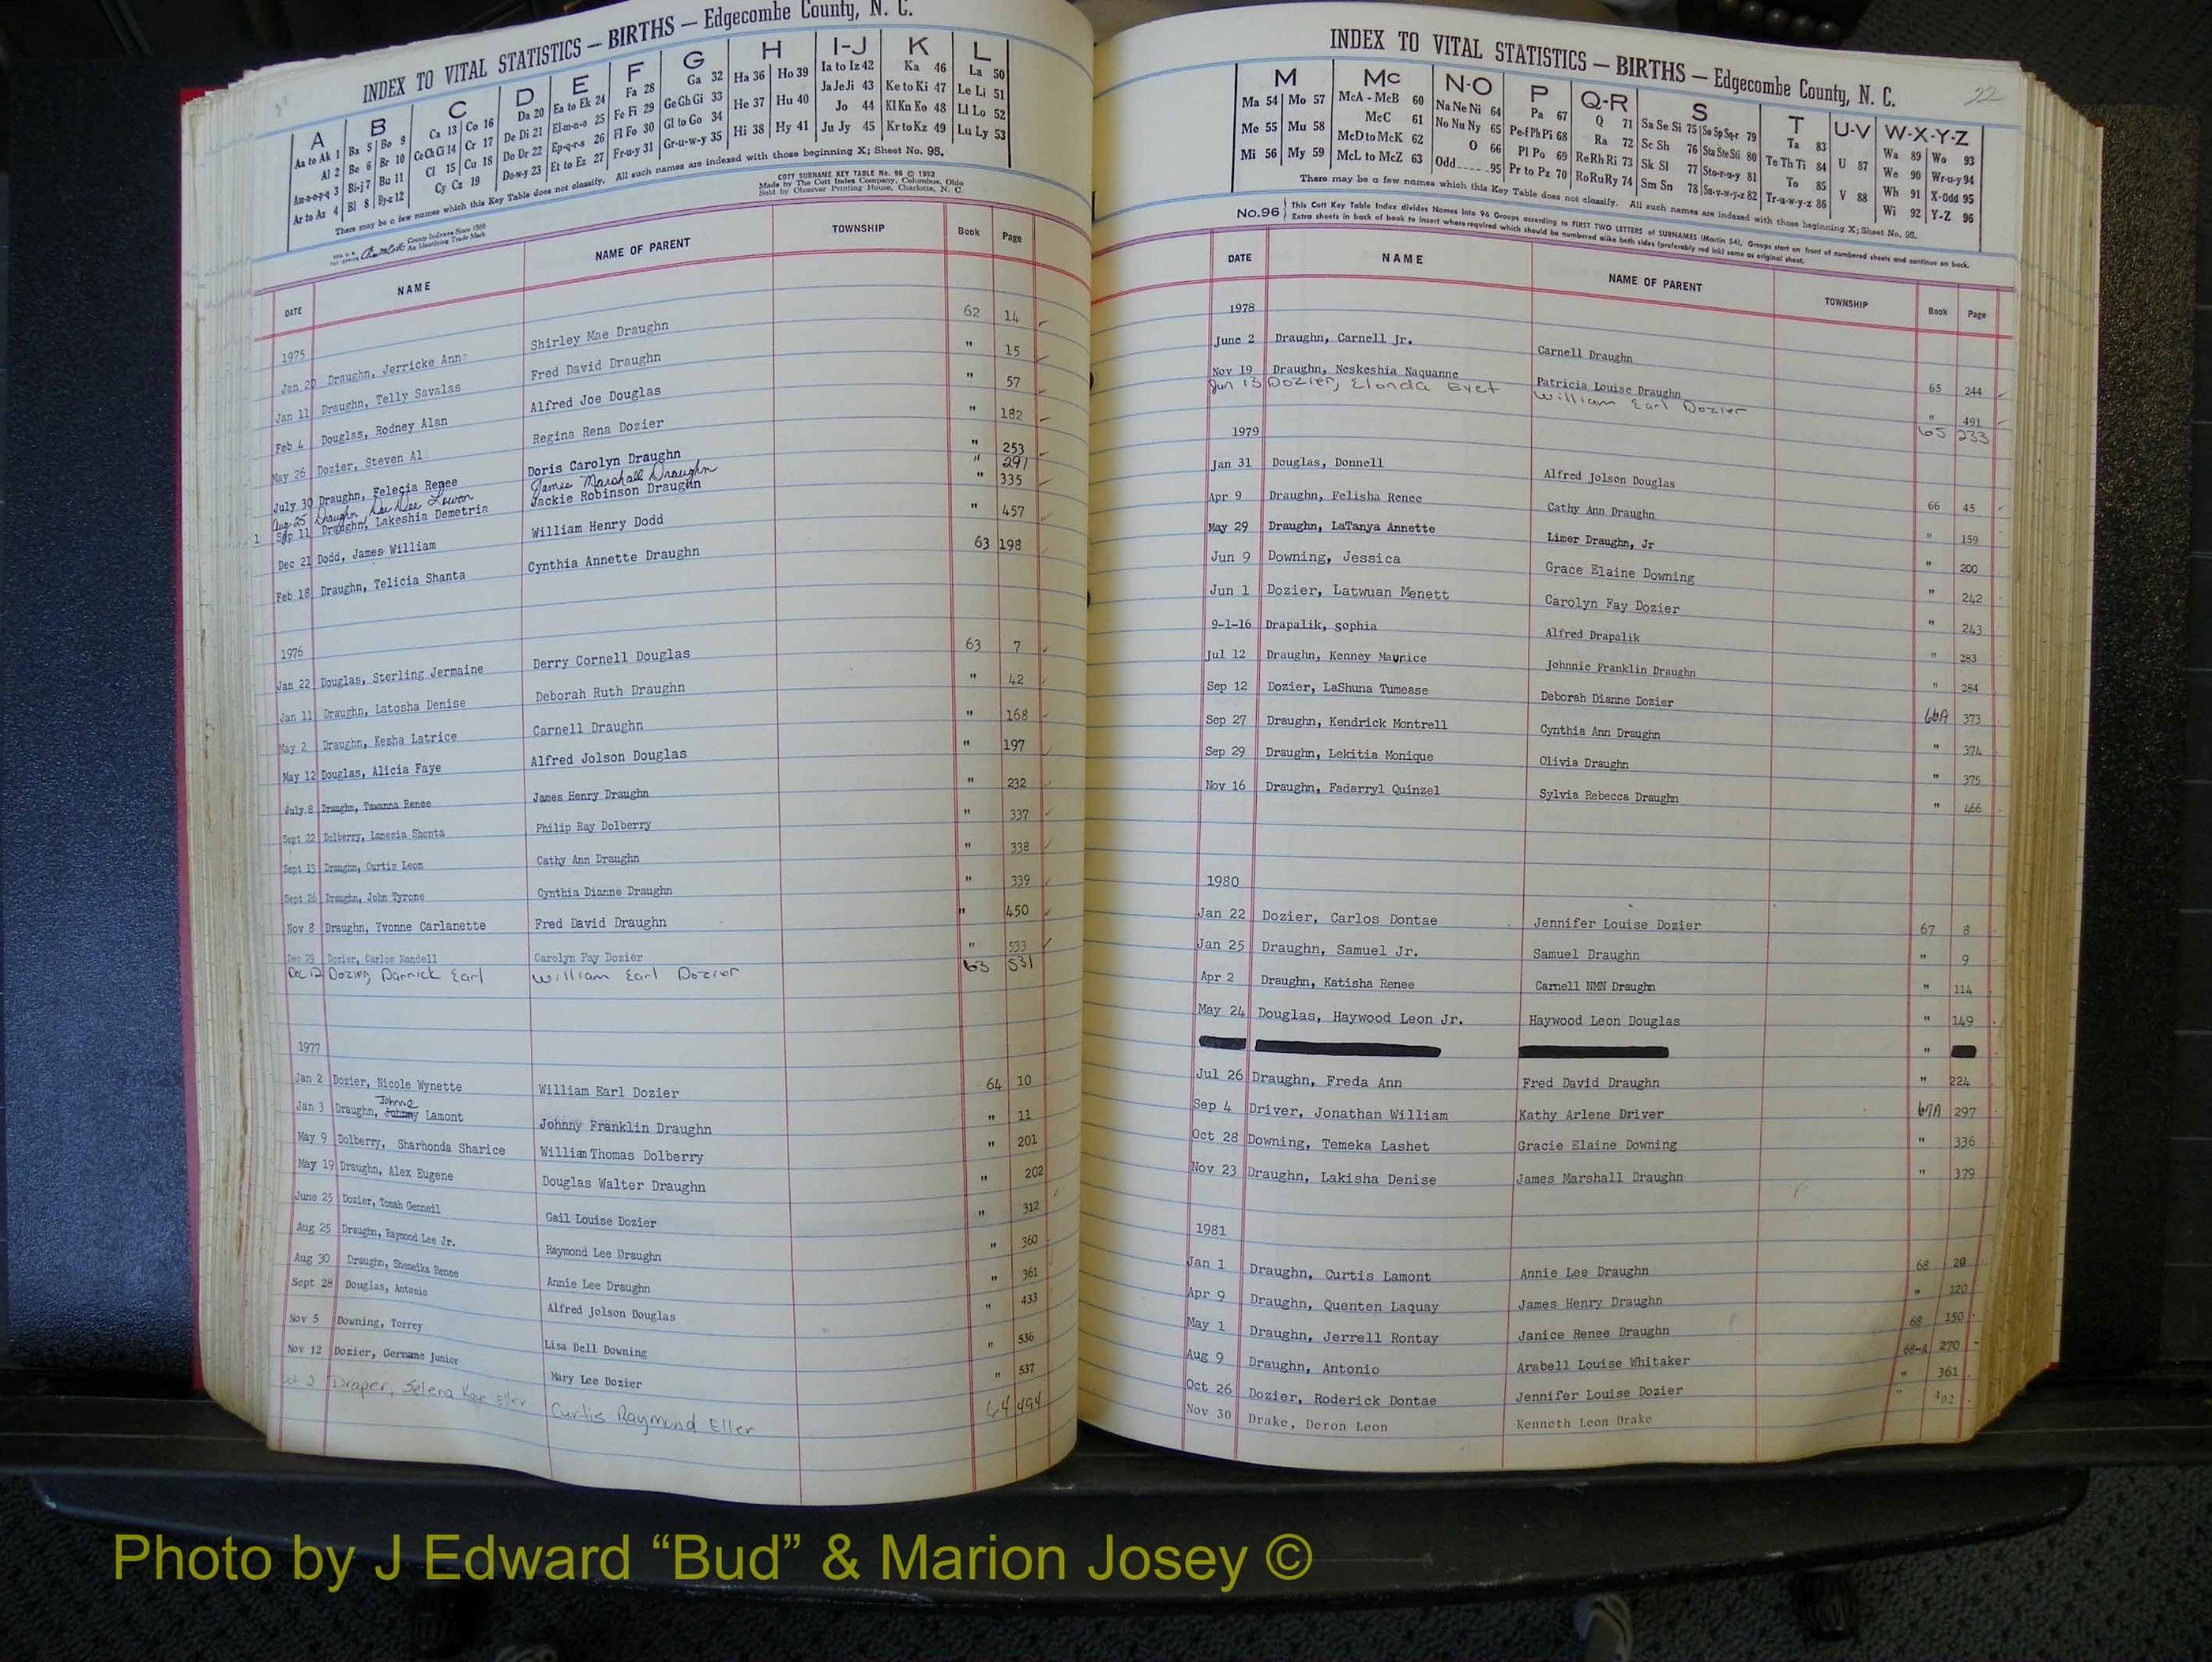 INDEX TO VITAL STATISTICS — BIRTHS — Edgecombe County, N. C.
A B C D E F G H I-J K L
Aa to Ak 1 Ba 5 Bo 9 Ca 13 Co 16 Da 20 Ea to Ek 24 Fa 28 Ga 32 Ha 36 Ho 39 Ia to Iz 42 Ka 46 La 50
Al 2 Be 6 Br 10 Ce Ch Ci 14 Cr 17 De Di 21 El-m-n-o 25 Fe Fi 29 Ge Gh Gi 33 He 37 Hu 40 Ja Je Ji 43 Ke to Ki 47 Le Li 51
Am-n-o-p-q 3 Bi-j 7 Bu 11 Cl 15 Cu 18 Do Dr 22 Ep-q-r-s 26 Fl Fo 30 Gl to Go 34 Hi 38 Hy 41 Jo 44 Kl Kn Ko 48 Ll Lo 52
Ar to Az 4 Bl 8 By-z 12 Cy Cz 19 Du-w-y 23 Et to Ez 27 Fr-u-y 31 Gr-u-w-y 35 Ju Jy 45 Kr to Kz 49 Lu Ly 53
There may be a few names which this Key Table does not classify. All such names are indexed with those beginning X; Sheet No. 95.
COTT SURNAME KEY TABLE No. 96 © 1952
Made by The Cott Index Company, Columbus, Ohio
Sold by Observer Printing House, Charlotte, N. C.
County Indexes Since 1888
An Identifying Trade Mark
DATE NAME NAME OF PARENT TOWNSHIP Book Page
1975
Jan 20 Draughn, Jerricke Ann Shirley Mae Draughn 62 14
Jan 11 Draughn, Telly Savalas Fred David Draughn " 15
Feb 4 Douglas, Rodney Alan Alfred Joe Douglas " 57
May 26 Dozier, Steven Al Regina Rena Dozier " 182
July 30 Draughn, Felecia Renee Doris Carolyn Draughn " 253
Aug 25 Draughn, Dee Dee Lowon James Marshall Draughn " 291
1 Sep 11 Draughn, Lakeshia Demetria Jackie Robinson Draughn " 335
Dec 21 Dodd, James William William Henry Dodd " 457
Feb 18 Draughn, Telicia Shanta Cynthia Annette Draughn 63 198
1976
Jan 22 Douglas, Sterling Jermaine Derry Cornell Douglas 63 7
Jan 11 Draughn, Latosha Denise Deborah Ruth Draughn " 42
May 2 Draughn, Kesha Latrice Carnell Draughn " 168
May 12 Douglas, Alicia Faye Alfred Jolson Douglas " 197
July 8 Draughn, Tawanna Renee James Henry Draughn " 232
Sept 22 Dolberry, Lanesia Shonta Philip Ray Dolberry " 337
Sept 13 Draughn, Curtis Leon Cathy Ann Draughn " 338
Sept 26 Draughn, John Tyrone Cynthia Dianne Draughn " 339
Nov 8 Draughn, Yvonne Carlanette Fred David Draughn " 450
Dec 29 Dozier, Carlos Nandell Carolyn Fay Dozier " 533
Dec 12 Dozier, Darrick Earl William Earl Dozier 63 531
1977
Jan 2 Dozier, Nicole Wynette William Earl Dozier 64 10
Johnne
Jan 3 Draughn, Johnny Lamont Johnny Franklin Draughn " 11
May 9 Dolberry, Sharhonda Sharice William Thomas Dolberry " 201
May 19 Draughn, Alex Eugene Douglas Walter Draughn " 202
June 25 Dozier, Tomah Genneil Gail Louise Dozier " 312
Aug 25 Draughn, Raymond Lee Jr. Raymond Lee Draughn " 360
Aug 30 Draughn, Shemeika Renee Annie Lee Draughn " 361
Sept 28 Douglas, Antonio Alfred Jolson Douglas " 433
Nov 5 Downing, Torrey Lisa Dell Downing " 536
Nov 12 Dozier, Germane Junior Mary Lee Dozier " 537
Oct 2 Draper, Selena Kaye Eller Curtis Raymond Eller 64 494
INDEX TO VITAL STATISTICS — BIRTHS — Edgecombe County, N. C.
22
M Mc N-O P Q-R S T U-V W-X-Y-Z
Ma 54 Mo 57 McA - McB 60 Na Ne Ni 64 Pa 67 Q 71 Sa Se Si 75 So Sp Sq-r 79 Ta 83 U 87 Wa 89 Wo 93
Me 55 Mu 58 McC 61 No Nu Ny 65 Pe-f Ph Pi 68 Ra 72 Sc Sh 76 Sta Ste Sti 80 Te Th Ti 84 V 88 We 90 Wr-u-y 94
Mi 56 My 59 McD to McK 62 O 66 Pl Po 69 Re Rh Ri 73 Sk Sl 77 Sto-r-u-y 81 To 85 Wh 91 X-Odd 95
McL to McZ 63 Odd 95 Pr to Pz 70 Ro Ru Ry 74 Sm Sn 78 Su-v-w-y-z 82 Tr-u-w-y-z 86 Wi 92 Y-Z 96
There may be a few names which this Key Table does not classify. All such names are indexed with those beginning X; Sheet No. 95.
No. 96 This Cott Key Table Index divides Names into 96 Groups according to FIRST TWO LETTERS of SURNAMES (Martin 54). Groups start on front of numbered sheets and continue on back.
Extra sheets in back of book to insert where required which should be numbered alike both sides (preferably red ink) same as original sheet.
DATE NAME NAME OF PARENT TOWNSHIP Book Page
1978
June 2 Draughn, Carnell Jr. Carnell Draughn 65 244
Nov 19 Draughn, Neskeshia Naquanne Patricia Louise Draughn " 491
Jun 13 Dozier, Elonda Evet William Earl Dozier 65 233
1979
Jan 31 Douglas, Donnell Alfred Jolson Douglas 66 45
Apr 9 Draughn, Felisha Renee Cathy Ann Draughn " 159
May 29 Draughn, LaTanya Annette Limer Draughn, Jr " 200
Jun 9 Downing, Jessica Grace Elaine Downing " 242
Jun 1 Dozier, Latwuan Menett Carolyn Fay Dozier " 243
9-1-16 Drapalik, sophia Alfred Drapalik " 283
Jul 12 Draughn, Kenney Maurice Johnnie Franklin Draughn " 284
Sep 12 Dozier, LaShuna Tumease Deborah Dianne Dozier 66A 373
Sep 27 Draughn, Kendrick Montrell Cynthia Ann Draughn " 374
Sep 29 Draughn, Lekitia Monique Olivia Draughn " 375
Nov 16 Draughn, Fadarryl Quinzel Sylvia Rebecca Draughn " 466
1980
Jan 22 Dozier, Carlos Dontae Jennifer Louise Dozier 67 8
Jan 25 Draughn, Samuel Jr. Samuel Draughn " 9
Apr 2 Draughn, Katisha Renee Carnell NMN Draughn " 114
May 24 Douglas, Haywood Leon Jr. Haywood Leon Douglas " 149
"
Jul 26 Draughn, Freda Ann Fred David Draughn " 224
Sep 4 Driver, Jonathan William Kathy Arlene Driver 67A 297
Oct 28 Downing, Temeka Lashet Gracie Elaine Downing " 336
Nov 23 Draughn, Lakisha Denise James Marshall Draughn " 379
1981
Jan 1 Draughn, Curtis Lamont Annie Lee Draughn 68 20
Apr 9 Draughn, Quenten Laquay James Henry Draughn " 120
May 1 Draughn, Jerrell Rontay Janice Renee Draughn 68 150
Aug 9 Draughn, Antonio Arabell Louise Whitaker 68-A 270
Oct 26 Dozier, Roderick Dontae Jennifer Louise Dozier " 361
Nov 30 Drake, Deron Leon Kenneth Leon Drake " 402
Photo by J Edward “Bud” & Marion Josey ©